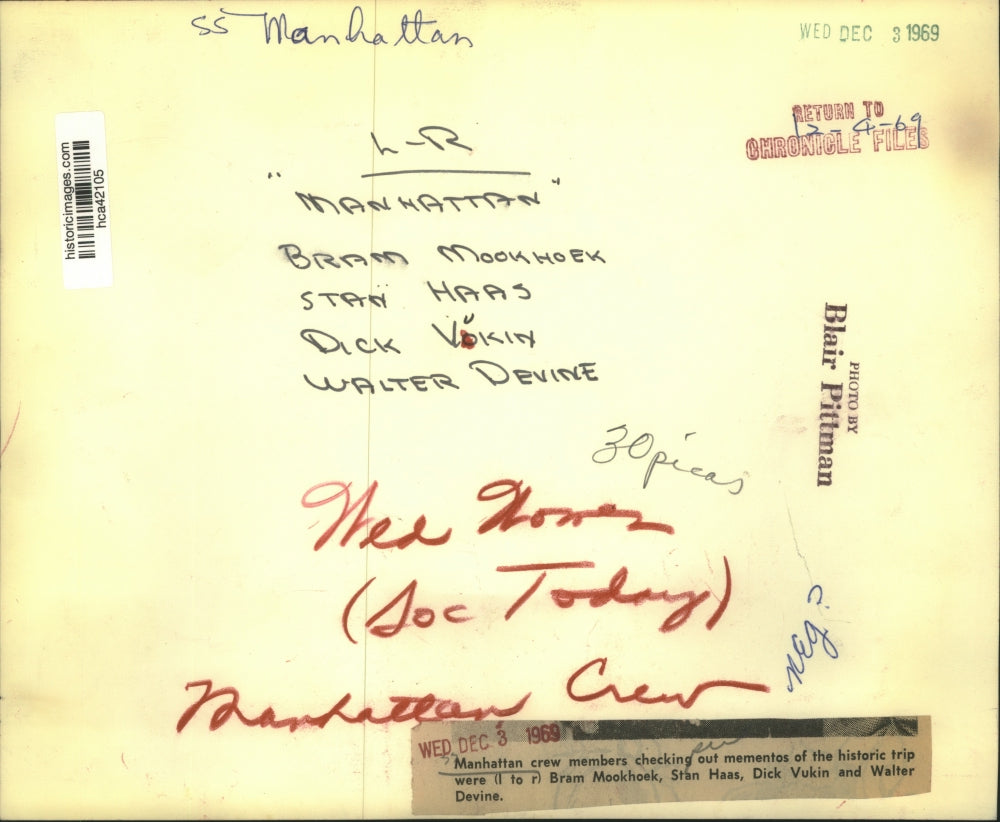 SS Manhattan
WED DEC 3 1969
RETURN TO
12-4-69
CHRONICLE FILES
historicimages.com
hca42105
L-R
"MANHATTAN"
BRAM MOOKHOEK
STAN HAAS
DICK VUKIN
WALTER DEVINE
PHOTO BY
Blair Pittman
30 picas
Wed Women
(Soc Today)
neg?
Manhattan Crew
WED DEC 3 1969
Manhattan crew members checking out mementos of the historic trip
were (l to r) Bram Mookhoek, Stan Haas, Dick Vukin and Walter
Devine.